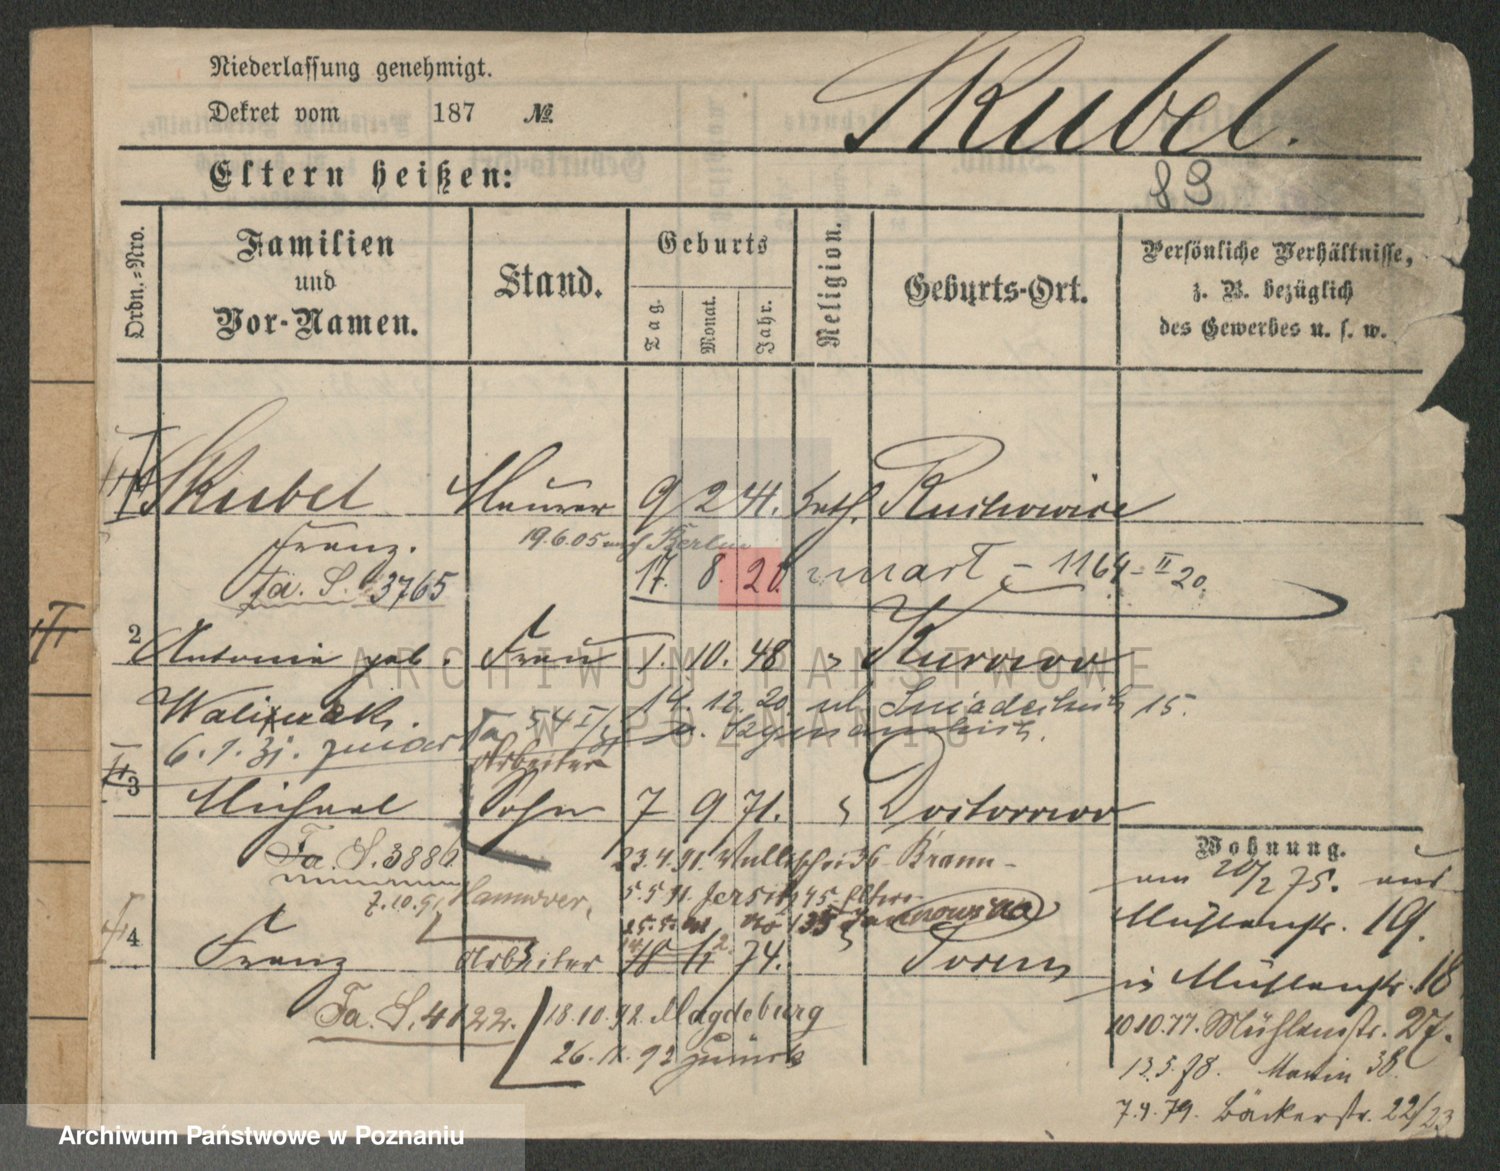 Niederlassung genehmigt.
Dekret vom 187 №
Skubel.
83
Eltern heißen:
Ordn.-Nro.
Familien
und
Vor-Namen.
Stand.
Geburts
Tag.
Monat.
Jahr.
Religion.
Geburts-Ort.
Persönliche Verhältnisse,
z. B. bezüglich
des Gewerbes u. s. w.
Skubel Maurer 9 2 41. kath.
Franz. 19.6.05 nach Berlin
Fa. S. 3765 17. 8. 20. 1164 - II 20.
2 Antonie geb. Frau 1. 10. 48
14. 12. 20. ul. Śniadeckich 15.
6. 1. 31.
Arbeiter
3 Michael Sohn 7 9 71.
Fa. S. 3886
7.10.91 Hannover,
23.4.91.
5.5.91 Jersitz 45
4 Franz Arbeiter 74.
Fa. S. 4122. 18.10.92 Magdeburg
26.11.92 zurück
Wohnung.
am 20/2 75. aus
Mühlenstr. 19.
in Mühlenstr. 18
10.10.77. Mühlenstr. 27.
13.5.78. 38.
7.4.79. Bäckerstr. 22/23
ARCHIWUM PAŃSTWOWE
W POZNANIU
Archiwum Państwowe w Poznaniu